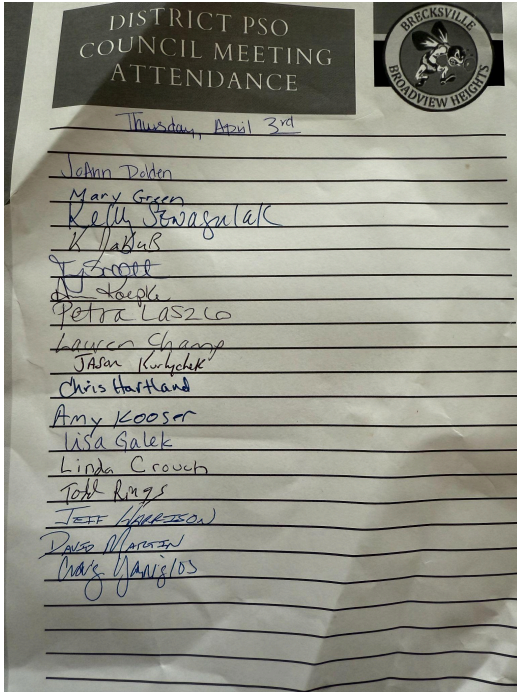 DISTRICT PSO
COUNCIL MEETING
ATTENDANCE
BRECKSVILLE
BROADVIEW HEIGHTS
Thursday, April 3rd
JoAnn Dolden
Mary Green
Kelly Szwagulak
K
Koepke
Petra LASZLO
Lauren Champ
JASON Kurlychek
Chris Hartland
Amy Kooser
Lisa Galek
Linda Crouch
Todd Rings
JEFF HARRISON
DAVID MARTIN
Craig Yaniglos